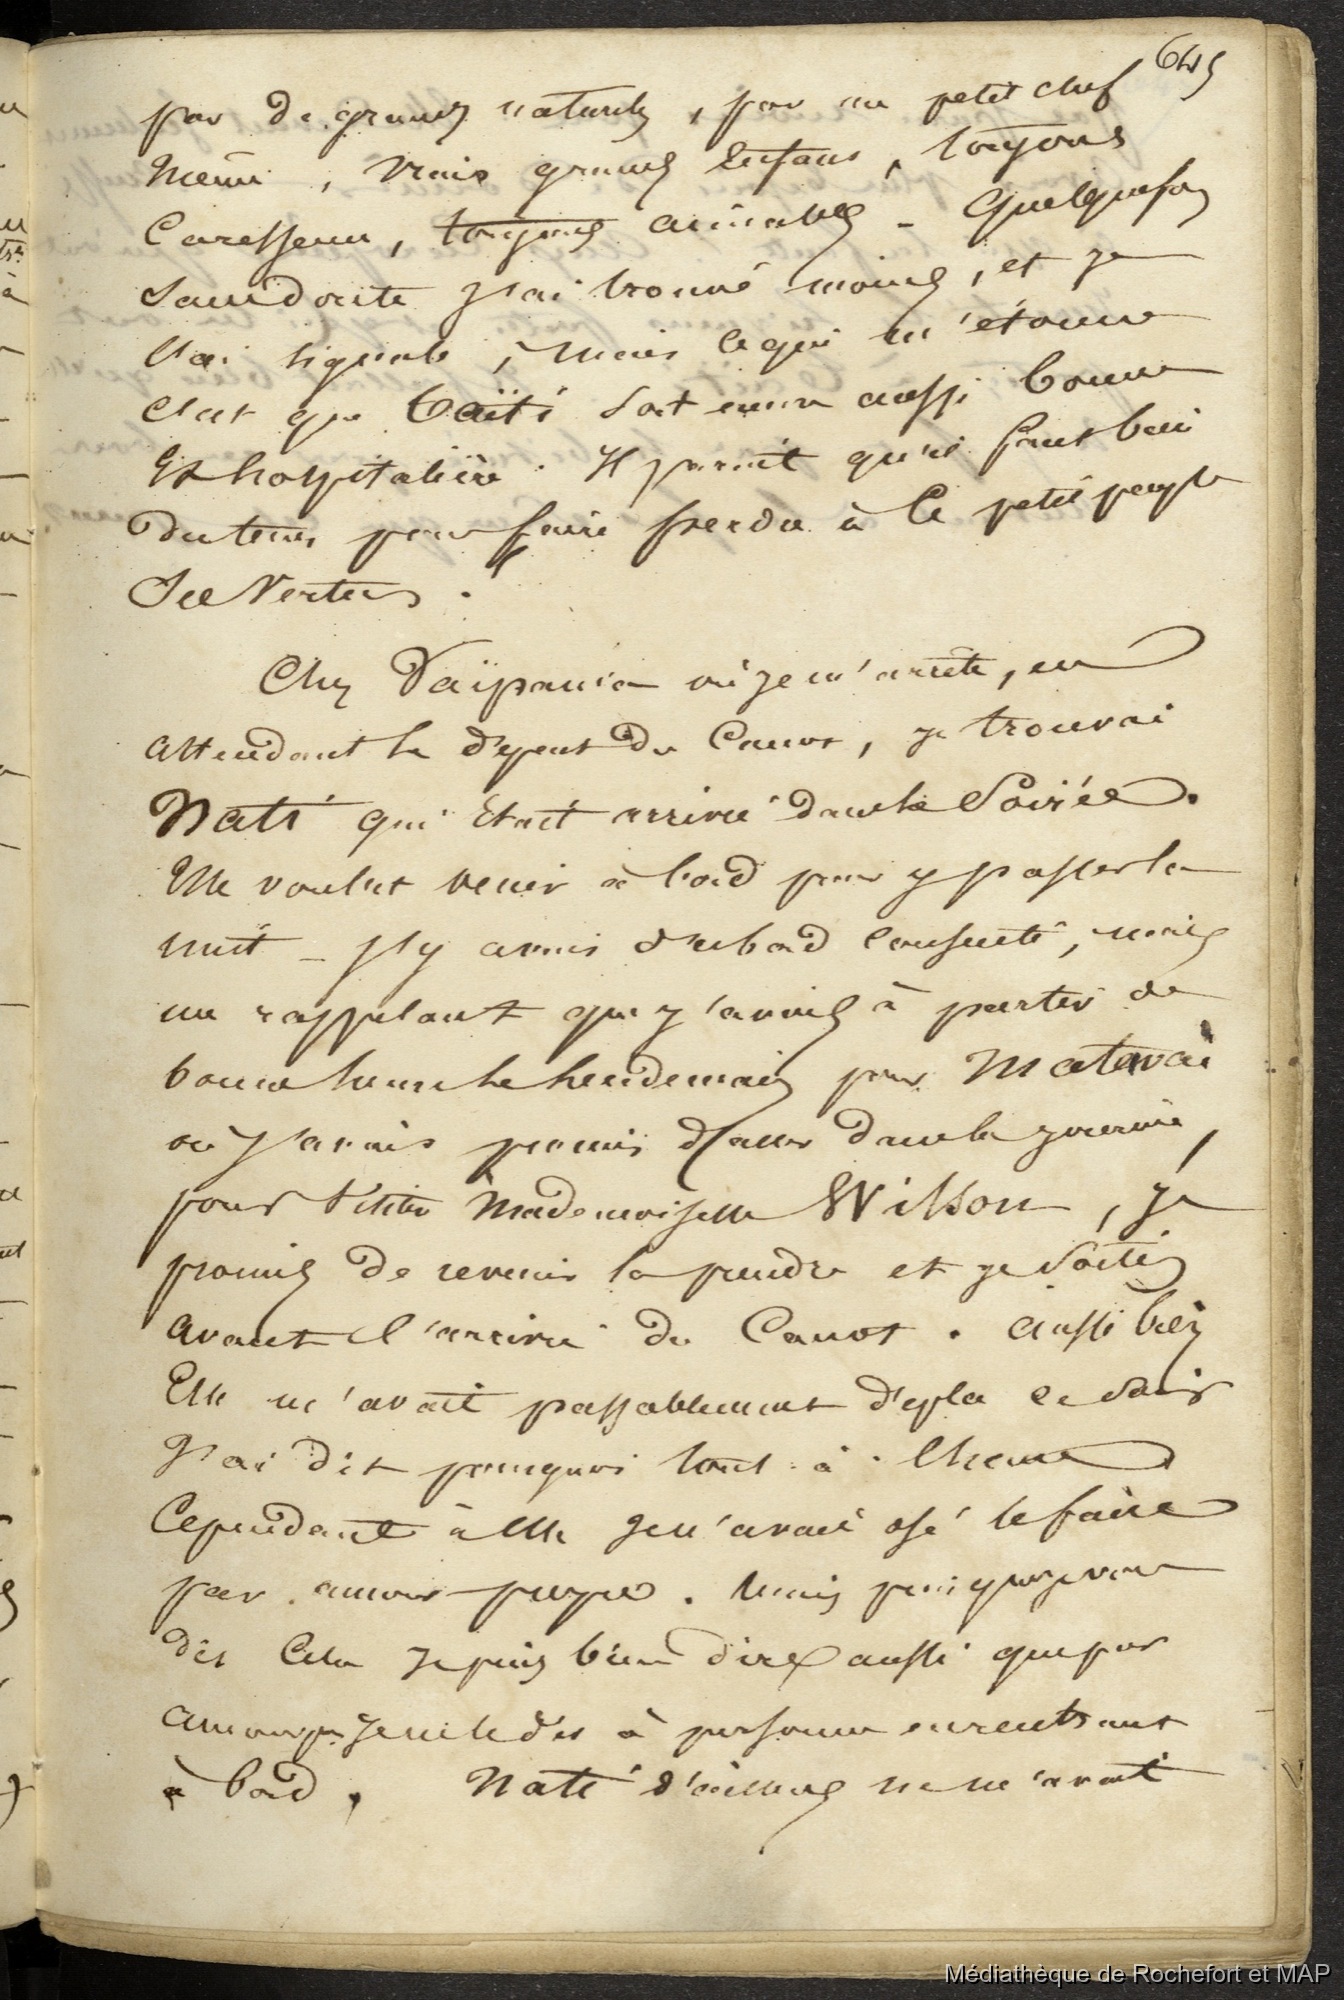 645
par de grands naturels, par un petit chef
même, vrais grands enfans, toujours
Caresseurs, toujours aimables - Quelquefois
sans doute j'ai trouvé moins, et je
l'ai signalé, mais ce qui m'étonne
c'est que Taïti soit encore aussi bonne
et hospitalière. Il parait qu'il faut bien
du tems pour faire perdre à ce petit peuple
ses vertus.
Chez Vaïpania où je m'arrête, en
attendant le départ du Canot, je trouvai
Nati qui était arrivé dans la Soirée.
Elle voulut venir à bord pour y passer la
nuit - j'y avais d'abord consenti, mais
me rappelant que j'avais à partir de
bonne heure le lendemain pour Matavai
où j'avais promis d'aller dans la journée,
pour visiter Mademoiselle Wilson, je
promis de revenir la prendre et je sortis
avant l'arrivée du Canot. aussi bien
Elle m'avait passablement déplu ce soir
J'ai dit pourquoi tout à l'heure
Cependant à elle je n'avais osé le faire
par amour-propre. Mais puisque je vous
dis cela je puis bien dire aussi que par
amour pr. je ne le dis à personne en rentrant
à bord. Nati d'ailleurs ne m'avait
Médiathèque de Rochefort et MAP